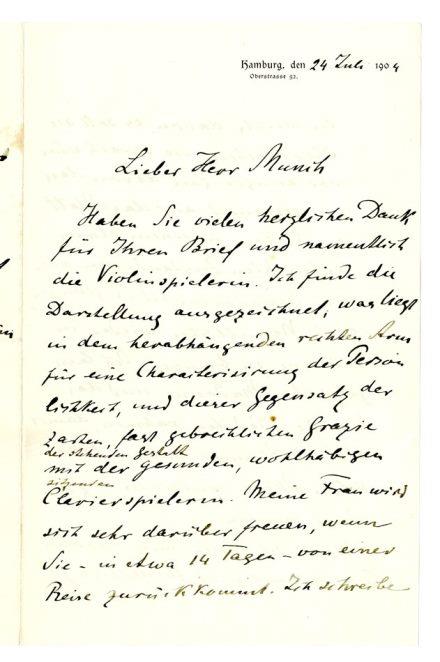 Hamburg, den 24 Juli 1904
Oberstrasse 92.
Lieber Herr Munch
Haben Sie vielen herzlichen Dank
für Ihren Brief und namentlich
die Violinspielerin. Ich finde die
Darstellung ausgezeichnet, was liegt
in dem herabhängenden rechten Arm
für eine Charakterisirung der Persön
lichkeit, und dieser Gegensatz der
zarten, fast gebrechlichen Grazie
der stehenden Gestalt
mit der gesunden, wohlhäbigen
sitzenden
Clavierspielerin. Meine Frau wird
sich sehr darüber freuen, wenn
Sie - in etwa 14 Tagen - von einer
Reise zurückkommt. Ich schreibe